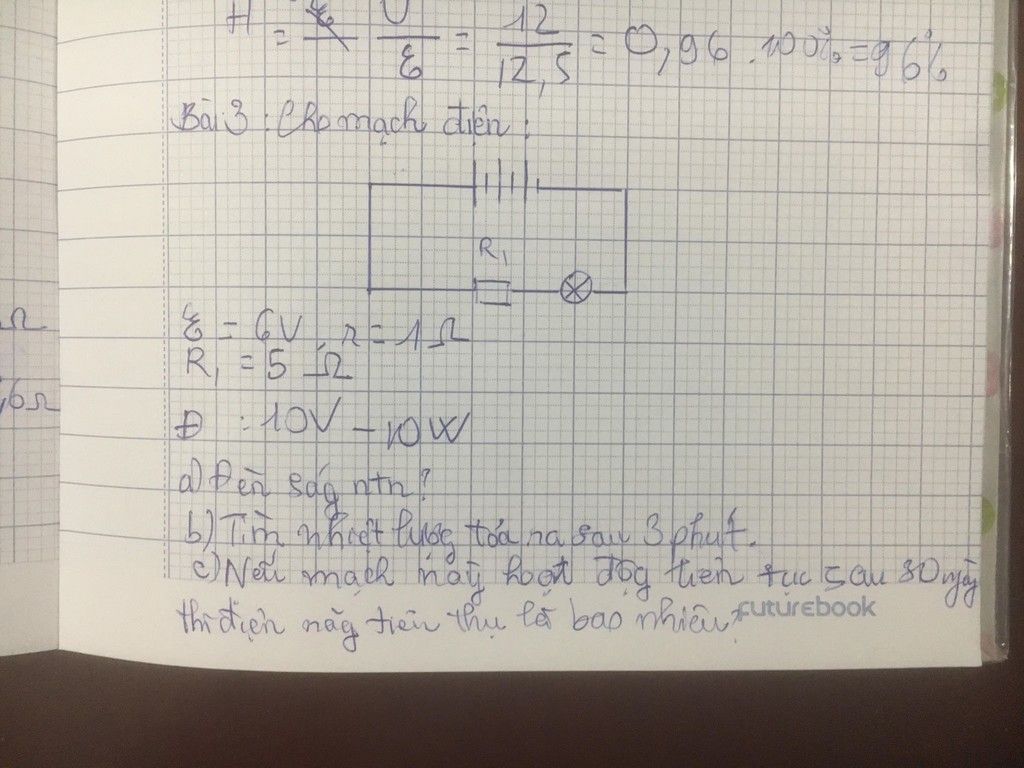 H = U/ℰ = 12/12,5 = 0,96 . 100% = 96%
Bài 3 : Cho mạch điện :
R₁
Ω
ℰ = 6V , r = 1Ω
R₁ = 5 Ω
,6Ω
Đ : 10V - 10W
a) Đèn ság ntn?
b) Tìm nhiệt lượg tỏa ra sau 3 phút.
c) Nếu mạch này hoạt độg liên tục sau 30 ngày
thì điện năg tiêu thụ là bao nhiêu?
futurebook